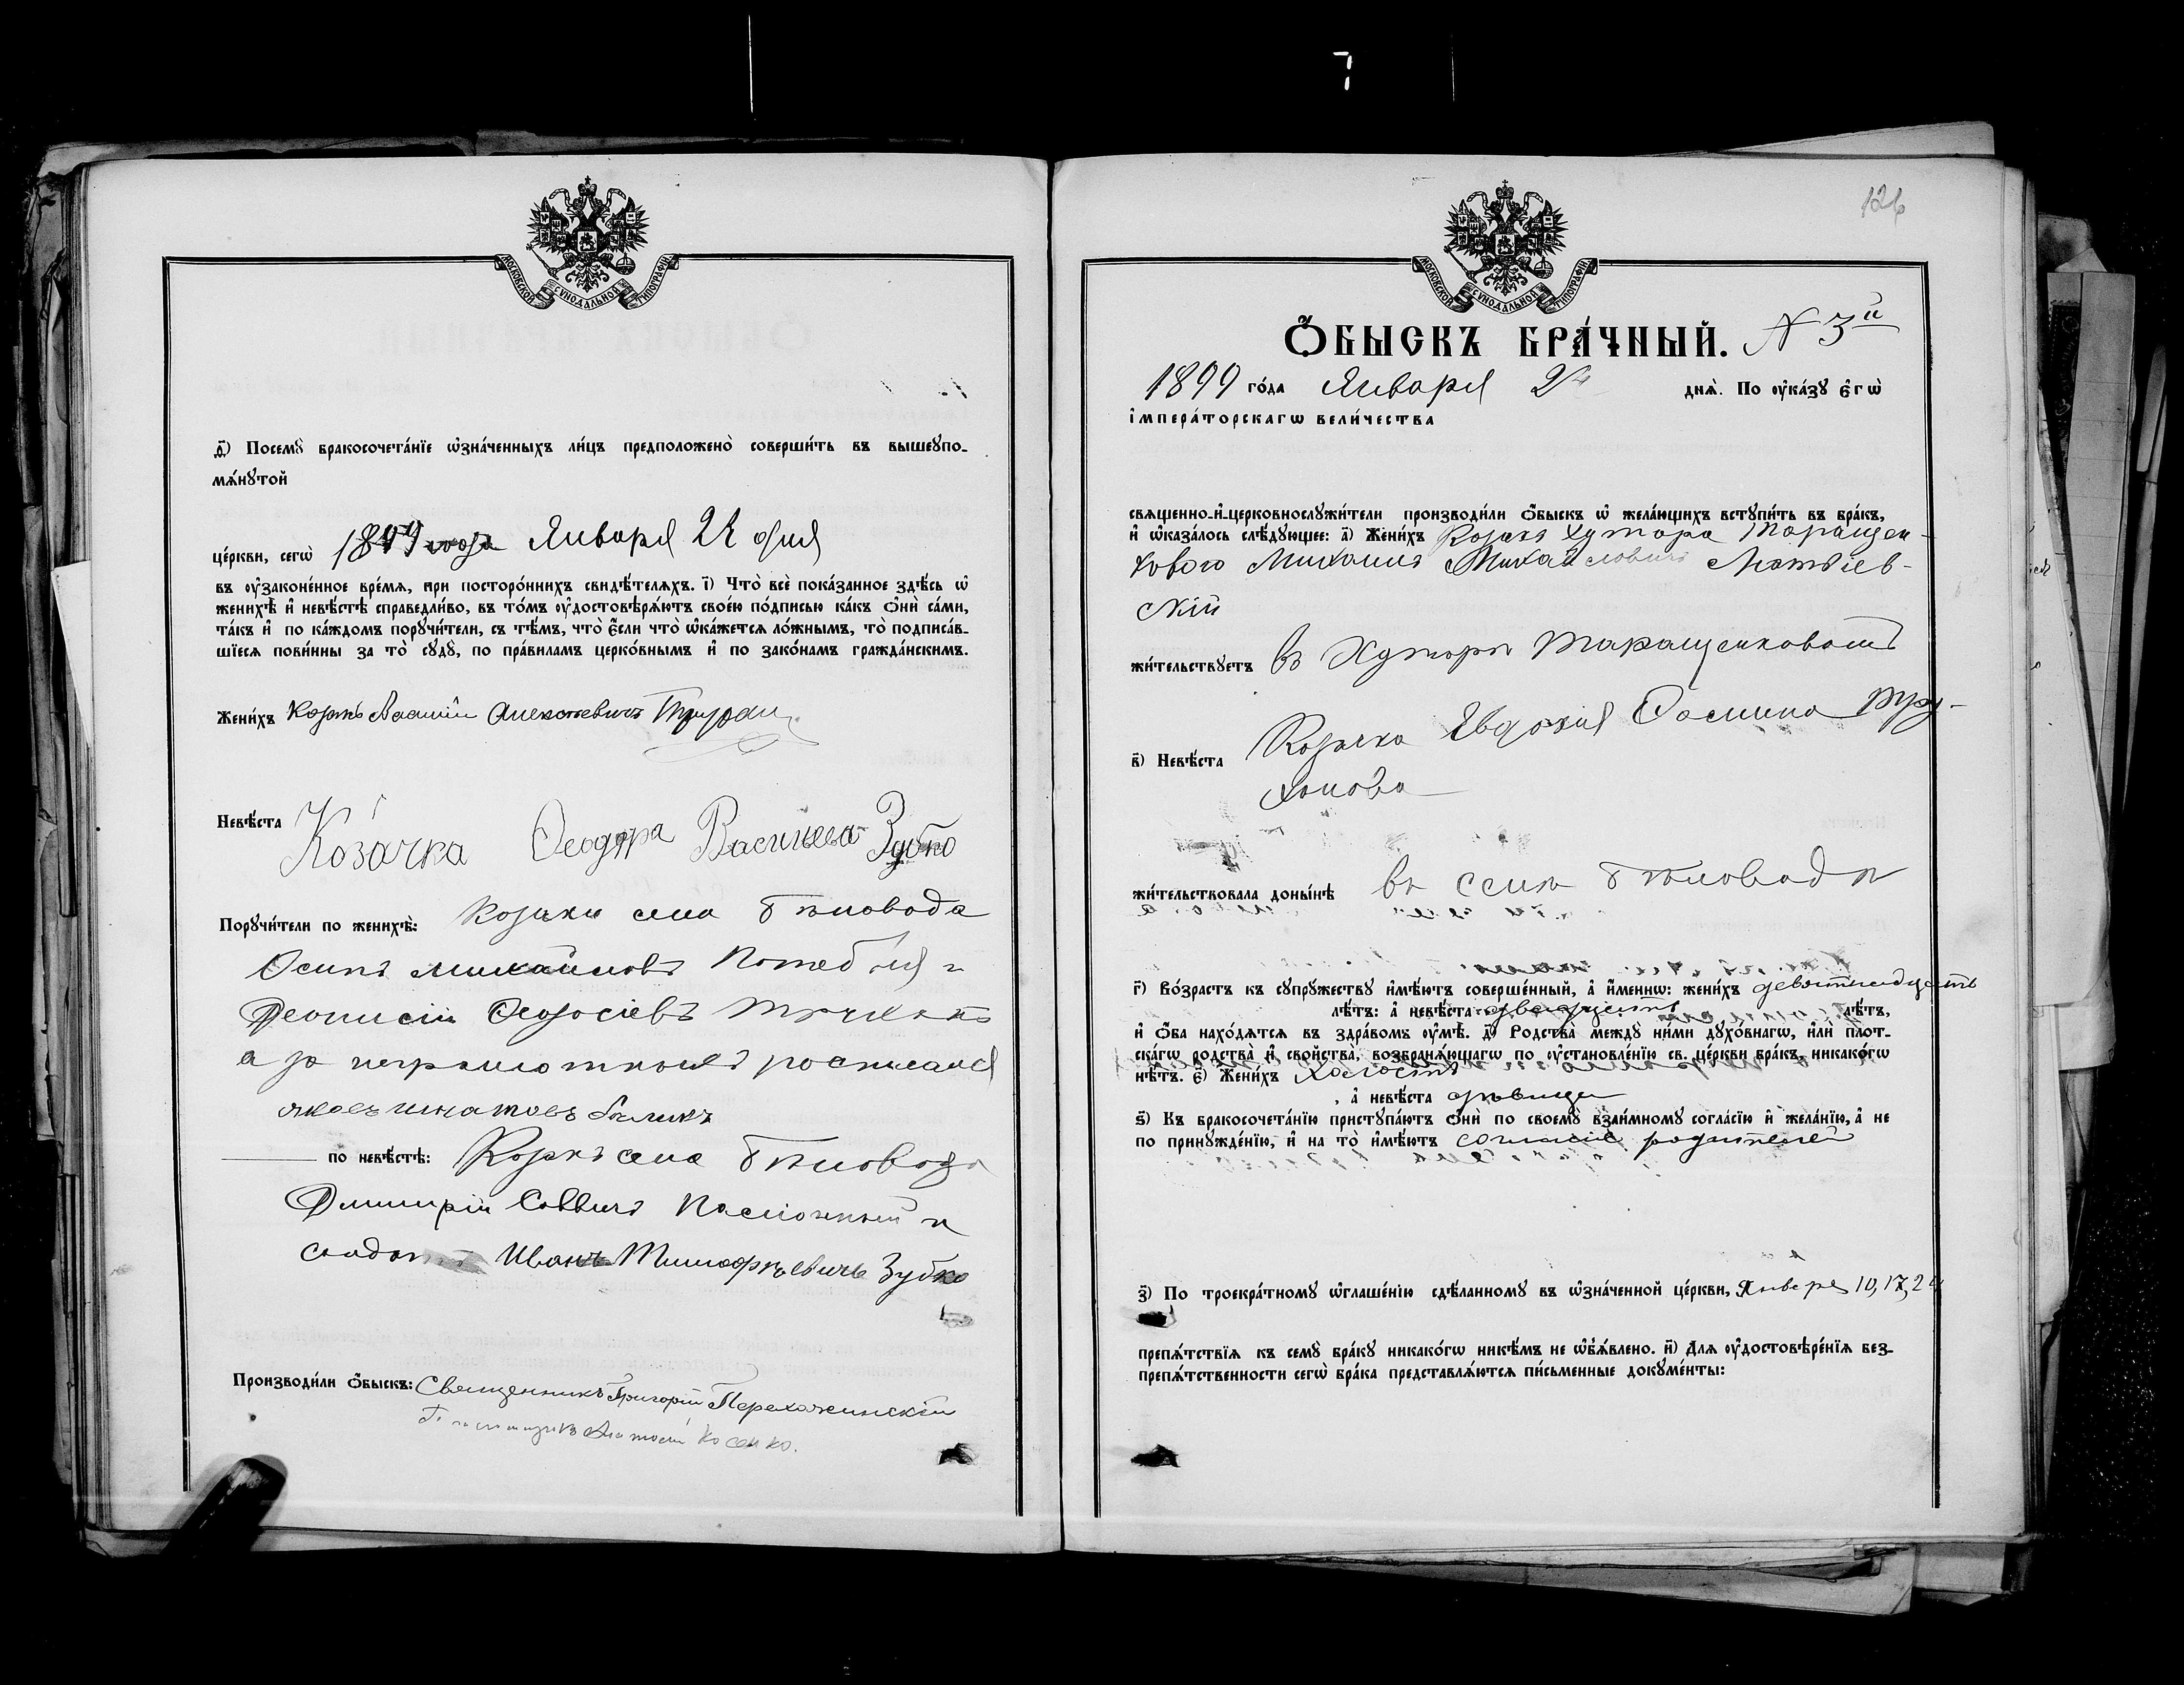 7
МОСКОВСКОЙ СѴНОДАЛЬНОЙ ТИПОГРАФІИ
Ѳ҃) Посемꙋ̀ бракосочета́нїе ѡ҆зна́ченныхъ ли́цъ предположено̀ соверши́ть въ вышеꙋпо-
мѧ́нꙋтой
це́ркви, сегѡ̀ 1899 года Января 24 дня
въ оу҆законе́нное вре́мѧ, при посторо́ннихъ свидѣ́телѧхъ. і҃) Что̀ всѐ пока́занное здѣ́сь ѡ҆
женихѣ̀ и҆ невѣ́стѣ справедли́во, въ то́мъ оу҆достовѣрѧ́ютъ свое́ю по́дписью ка́къ ѻ҆нѝ са́ми,
та́къ и҆ по ка́ждомъ порꙋчи́тели, съ тѣ́мъ, что̀ є҆́сли что̀ ѡ҆ка́жетсѧ ло́жнымъ, то̀ подписа́в-
шїесѧ пови́нны за то̀ сꙋдꙋ̀, по пра́виламъ церко́внымъ и҆ по зако́намъ гражда́нскимъ.
Жени́хъ Козакъ Алексѣевичъ
Невѣ́ста Козачка Ѳеодора Васильева Зубко
Порꙋчи́тели по женихѣ̀: Козаки села Бѣловода
Осипъ Михайловъ Потебня и
Ѳеодосіевъ
а за неграмотныхъ росписался
Яковъ
по невѣ́стѣ: Козакъ села Бѣловода
Димитрій Саввичъ и
Иванъ Тимоѳѣевичъ Зубко
Производи́ли ѻ҆́быскъ: Священникъ Григорій
Косенко.
126
МОСКОВСКОЙ СѴНОДАЛЬНОЙ ТИПОГРАФІИ
Ѻ҆́БЫСКЪ БРА́ЧНЫЙ. N 3й
1899 го́да Января 24 днѧ̀. По оу҆ка́зꙋ є҆гѡ̀
і҆мпера́торскагѡ вели́чества
свѧщенно-и҆-церковнослꙋжи́тели производи́ли ѻ҆́быскъ ѡ҆ жела́ющихъ встꙋпи́ть въ бра́къ,
и҆ ѡ҆каза́лось слѣ́дꙋющее: а҃) Жени́хъ Козакъ хутора Таращен-
кового Михаилъ Михайловичъ Матвіев-
скій
жи́тельствꙋетъ въ Хуторѣ Таращенковомъ
в҃) Невѣ́ста Козачка Евдокія Ѳомина Тру-
ханова
жи́тельствовала доны́нѣ въ селѣ Бѣловодѣ
г҃) Во́зрастъ къ сꙋпрꙋ́жествꙋ и҆мѣ́ютъ соверше́нный, а҆ и҆́меннѡ: жени́хъ девятнадцать
лѣ́тъ: а҆ невѣ́ста двадцать лѣ́тъ,
и҆ ѻ҆́ба нахо́дѧтсѧ въ здра́вомъ оу҆мѣ̀. д҃) Родства̀ междꙋ̀ ни́ми дꙋхо́внагѡ, и҆лѝ плот-
ска́гѡ родства̀ и҆ сво́йства, возбранѧ́ющагѡ по оу҆становле́нїю св. це́ркви бра́къ, никако́гѡ
нѣ́тъ. є҃) Жени́хъ холостъ
, а҆ невѣ́ста дѣвица
ѕ҃) Къ бракосочета́нїю пристꙋпа́ютъ ѻ҆нѝ по своемꙋ̀ взаи́мномꙋ согла́сїю и҆ жела́нїю, а҆ не
по принꙋжде́нїю, и҆ на то̀ и҆мѣ́ютъ согласіе родителей
з҃) По троекра́тномꙋ ѡ҆глаше́нїю сдѣ́ланномꙋ въ ѡ҆зна́ченной це́ркви, Января 10, 17, 24
препѧ́тствїѧ къ семꙋ̀ бра́кꙋ никако́гѡ никѣ́мъ не ѡ҆б̾ѧ́влено. и҃) Длѧ оу҆достовѣре́нїѧ без-
препѧ́тственности сегѡ̀ бра́ка представлѧ́ютсѧ пи́сьменные докꙋме́нты: